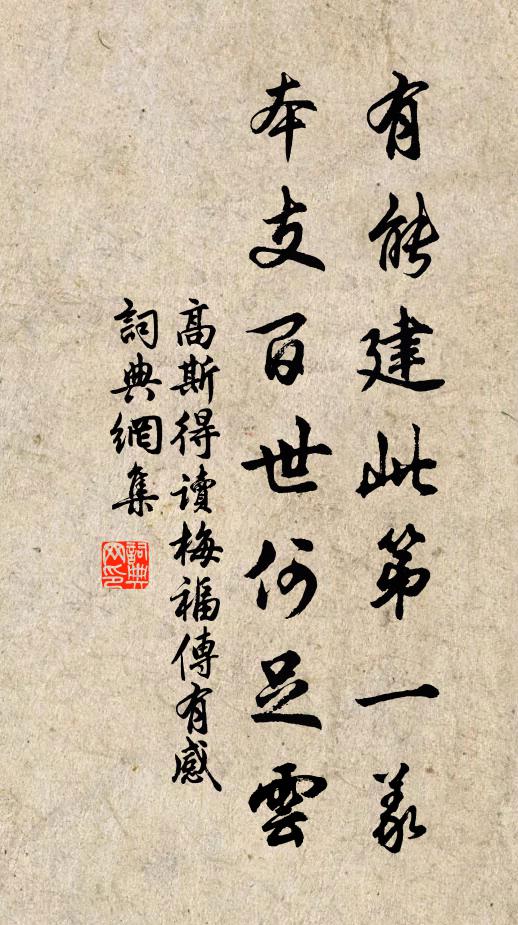 有能建此第一義
本支百世何足雲
高斯得讀梅福傳有感
詞典網集
詞典網印